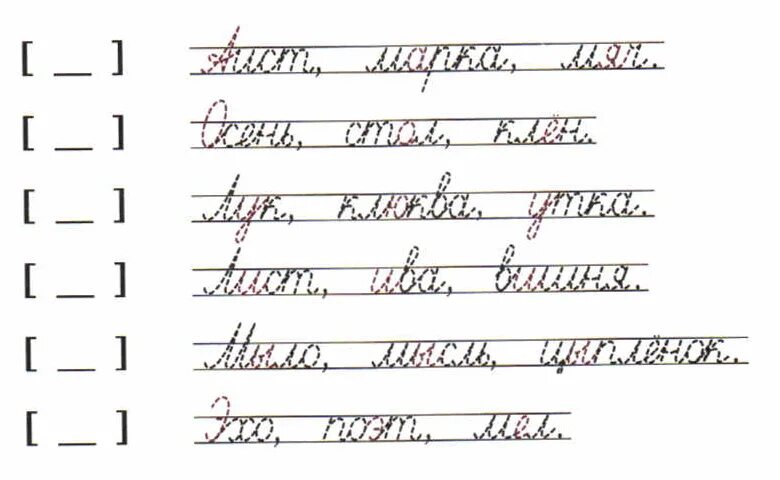 [ _ ] Аист, марка, мяч.
[ _ ] Осень, стол, клён.
[ _ ] Лук, клюква, утка.
[ _ ] Лист, ива, вишня.
[ _ ] Мыло, мысль, цыплёнок.
[ _ ] Эхо, поэт, мел.